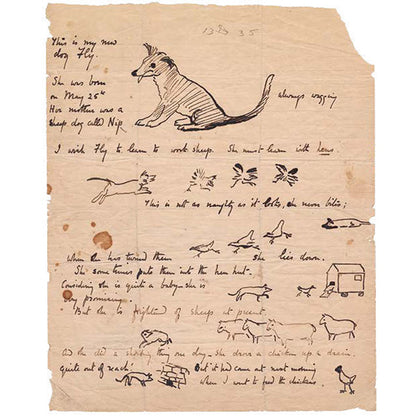 This is my new
dog Fly.
She was born
on May 25th
Her mother was a
sheep dog called Nip.
always wagging
I wish Fly to learn to work sheep. She must learn with hens.
This is not as naughty as it looks, she never bites;
When she has turned them she lies down.
She sometimes puts them into the hen hut.
Considering she is quite a baby - she is
very promising.
But she is frightened of sheep at present.
And she did a shocking thing one day - she drove a chicken up a drain.
quite out of reach! But it had came out next morning
when I went to feed the chickens.